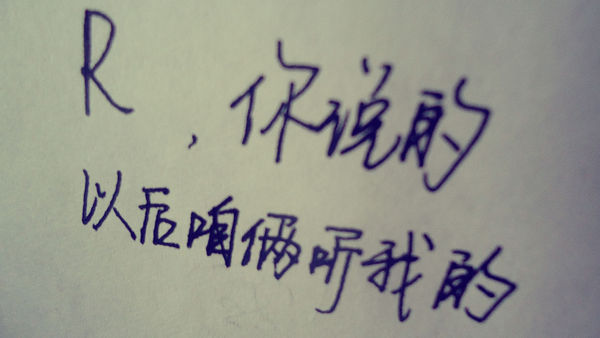 R，你说的
以后咱俩听我的